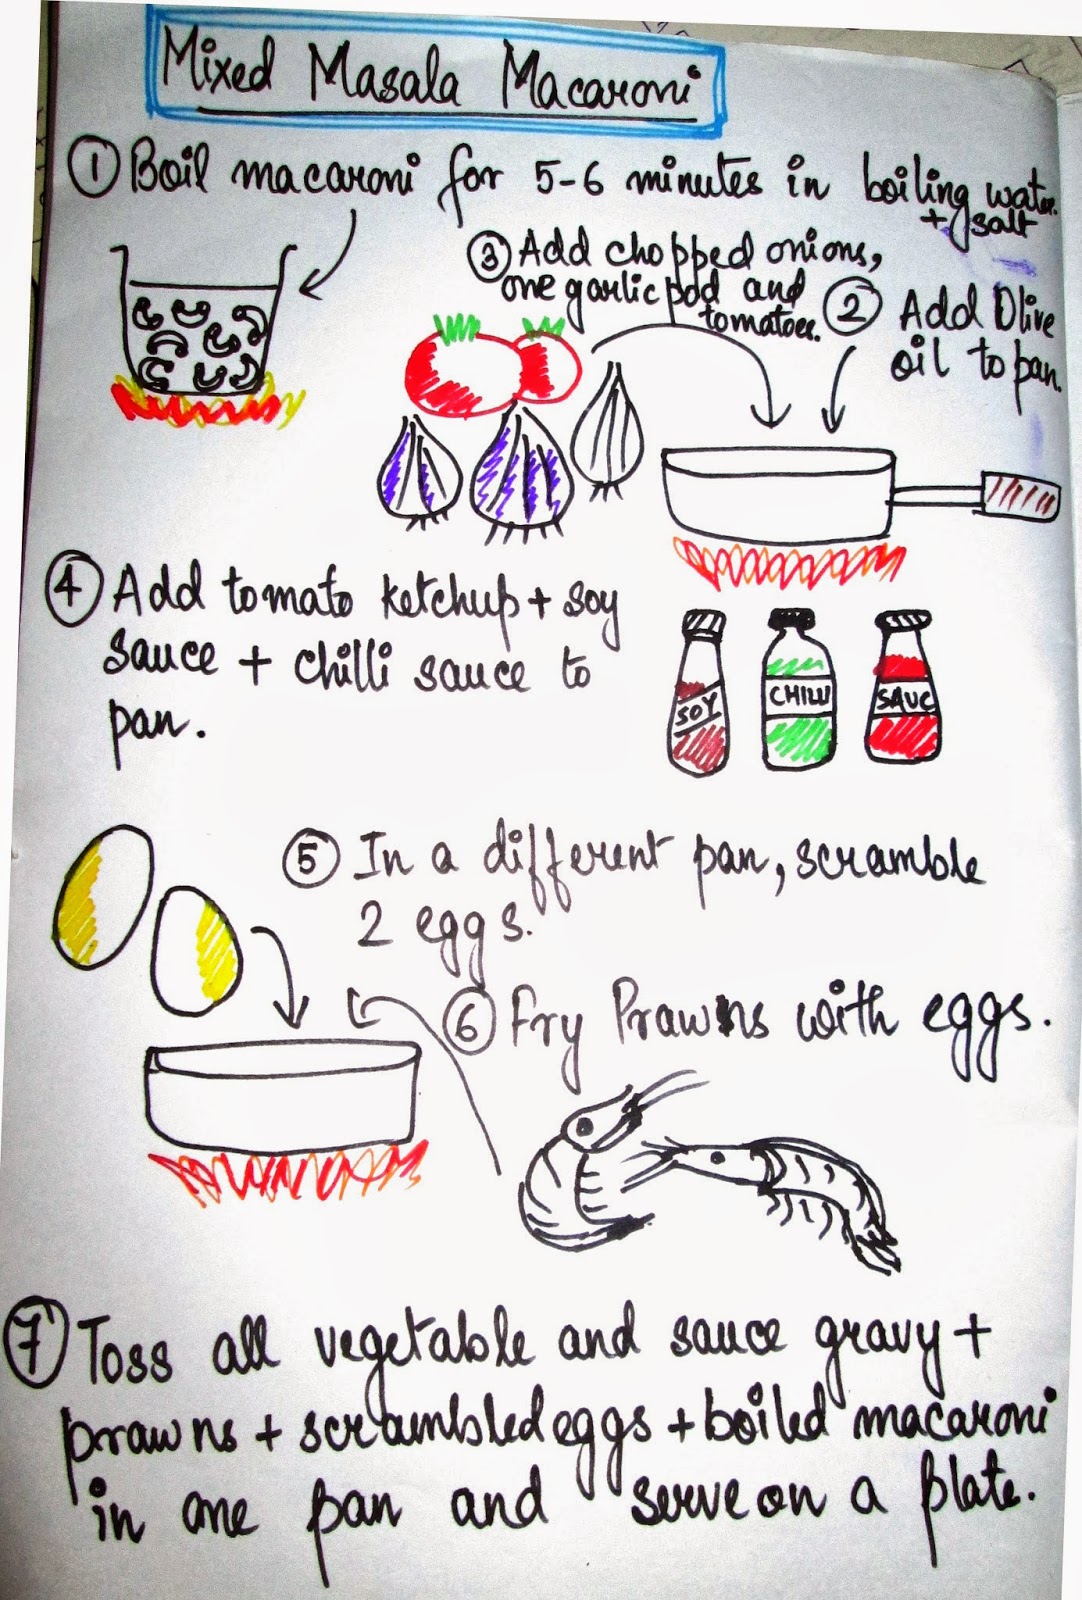 Mixed Masala Macaroni
① Boil macaroni for 5-6 minutes in boiling water.
+ salt
③ Add chopped onions,
one garlic pod and
tomatoes.
② Add Olive
oil to pan.
④ Add tomato ketchup + soy
sauce + chilli sauce to
pan.
SOY
CHILLI
SAUC
⑤ In a different pan, scramble
2 eggs.
⑥ Fry Prawns with eggs.
⑦ Toss all vegetable and sauce gravy +
prawns + scrambled eggs + boiled macaroni
in one pan and serve on a plate.